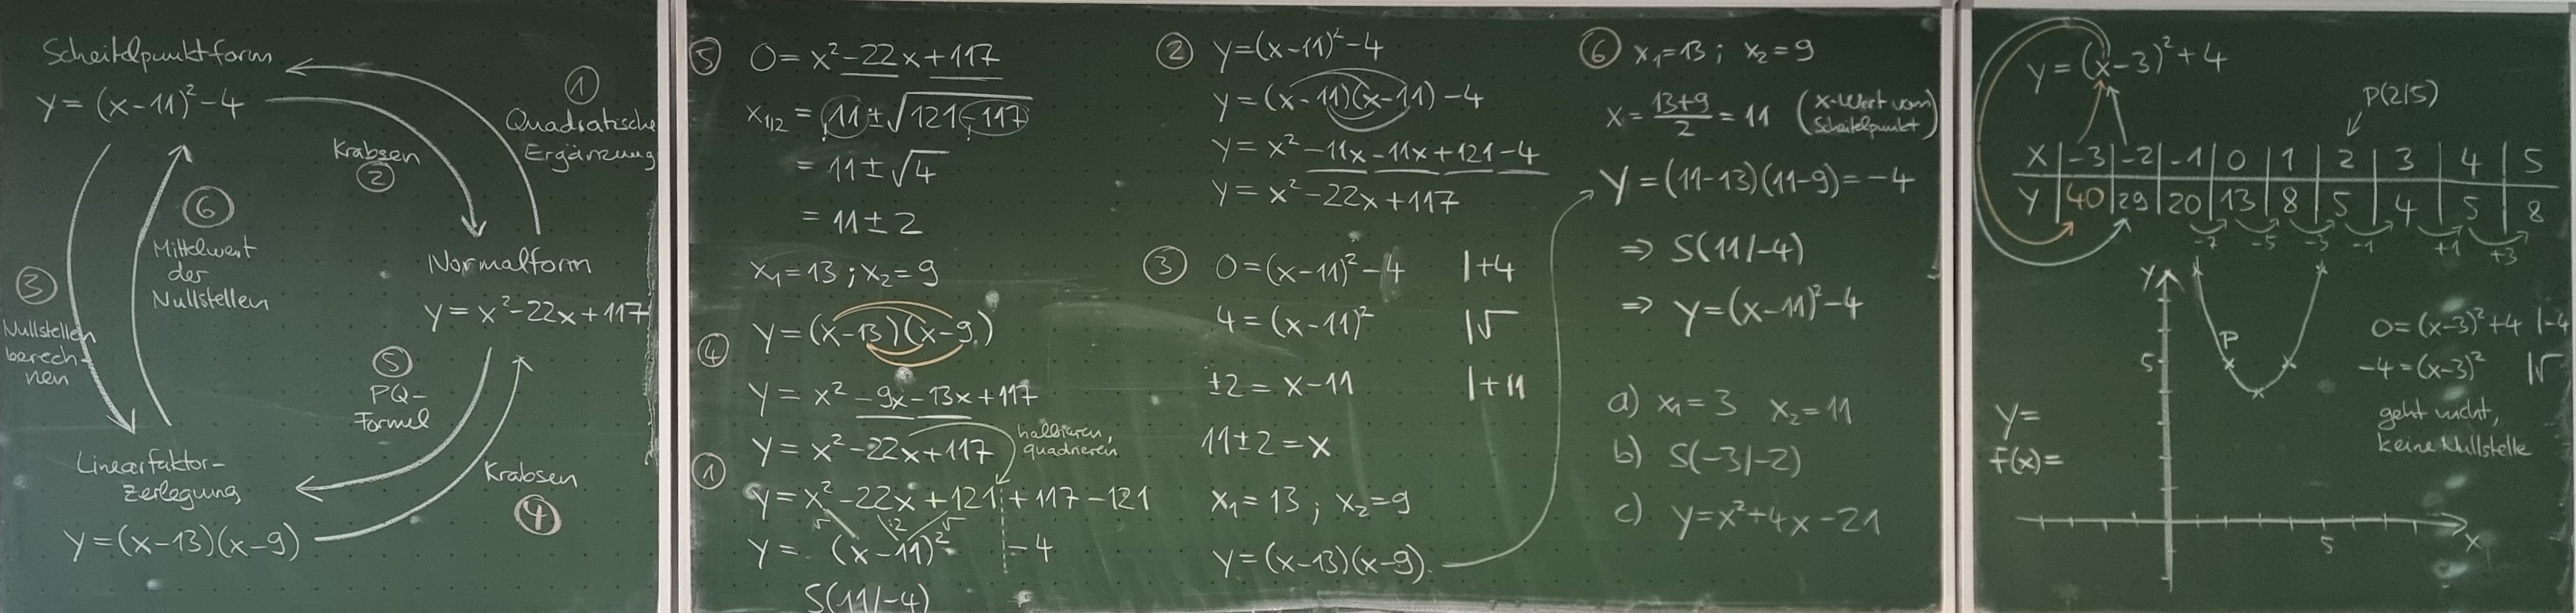 Scheitelpunktform
y = (x-11)² -4
①
Quadratische
Ergänzung
Krabsen
②
⑥
Mittelwert
der
Nullstellen
③
Nullstellen
berech-
nen
Normalform
y = x² -22x + 117
⑤
PQ-
Formel
Linearfaktor-
zerlegung
y = (x-13)(x-9)
Krabsen
④
⑤ 0 = x² -22x + 117
x1/2 = 11 ± √121-117
= 11 ± √4
= 11 ± 2
x₁ = 13 ; x₂ = 9
④ y = (x-13)(x-9)
y = x² -9x -13x + 117
y = x² -22x + 117
halbieren,
quadrieren
① y = x² -22x + 121 + 117 - 121
√ :2 √
y = (x-11)² -4
S(11/-4)
② y = (x-11)² -4
y = (x-11)(x-11) -4
y = x² -11x -11x + 121 -4
y = x² -22x + 117
③ 0 = (x-11)² -4 |+4
4 = (x-11)² |√
±2 = x-11 |+11
11±2 = x
x₁ = 13 ; x₂ = 9
y = (x-13)(x-9)
⑥ x₁ = 13 ; x₂ = 9
x = 13+9/2 = 11 (x-Wert vom Scheitelpunkt)
y = (11-13)(11-9) = -4
⇒ S(11/-4)
⇒ y = (x-11)² -4
a) x₁ = 3 x₂ = 11
b) S(-3/-2)
c) y = x² + 4x - 21
y = (x-3)² + 4
P(2/5)
x | -3 | -2 | -1 | 0 | 1 | 2 | 3 | 4 | 5
y | 40 | 29 | 20 | 13 | 8 | 5 | 4 | 5 | 8
-7 -5 -3 -1 +1 +3
y
P
5
0 = (x-3)² + 4 |-4
-4 = (x-3)² |√
geht nicht,
keine Nullstelle
y =
f(x) =
5
x